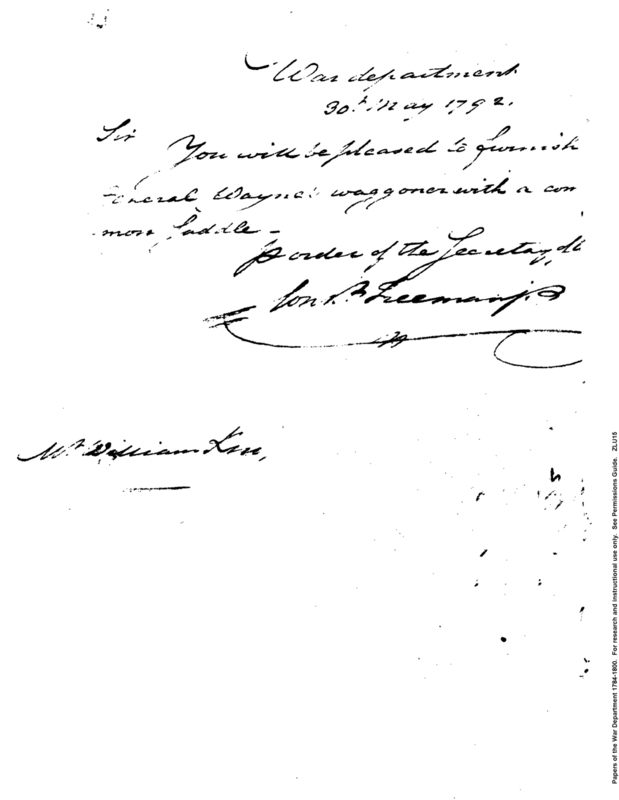 War department
30th May 1792.
Sir
You will be pleased to furnish
General Wayne's waggoner with a com
mon saddle -
p order of the Secretary
Con. Freeman jr
Mr William Knox,
Papers of the War Department 1784-1800. For research and instructional use only. See Permissions Guide. ZLU15